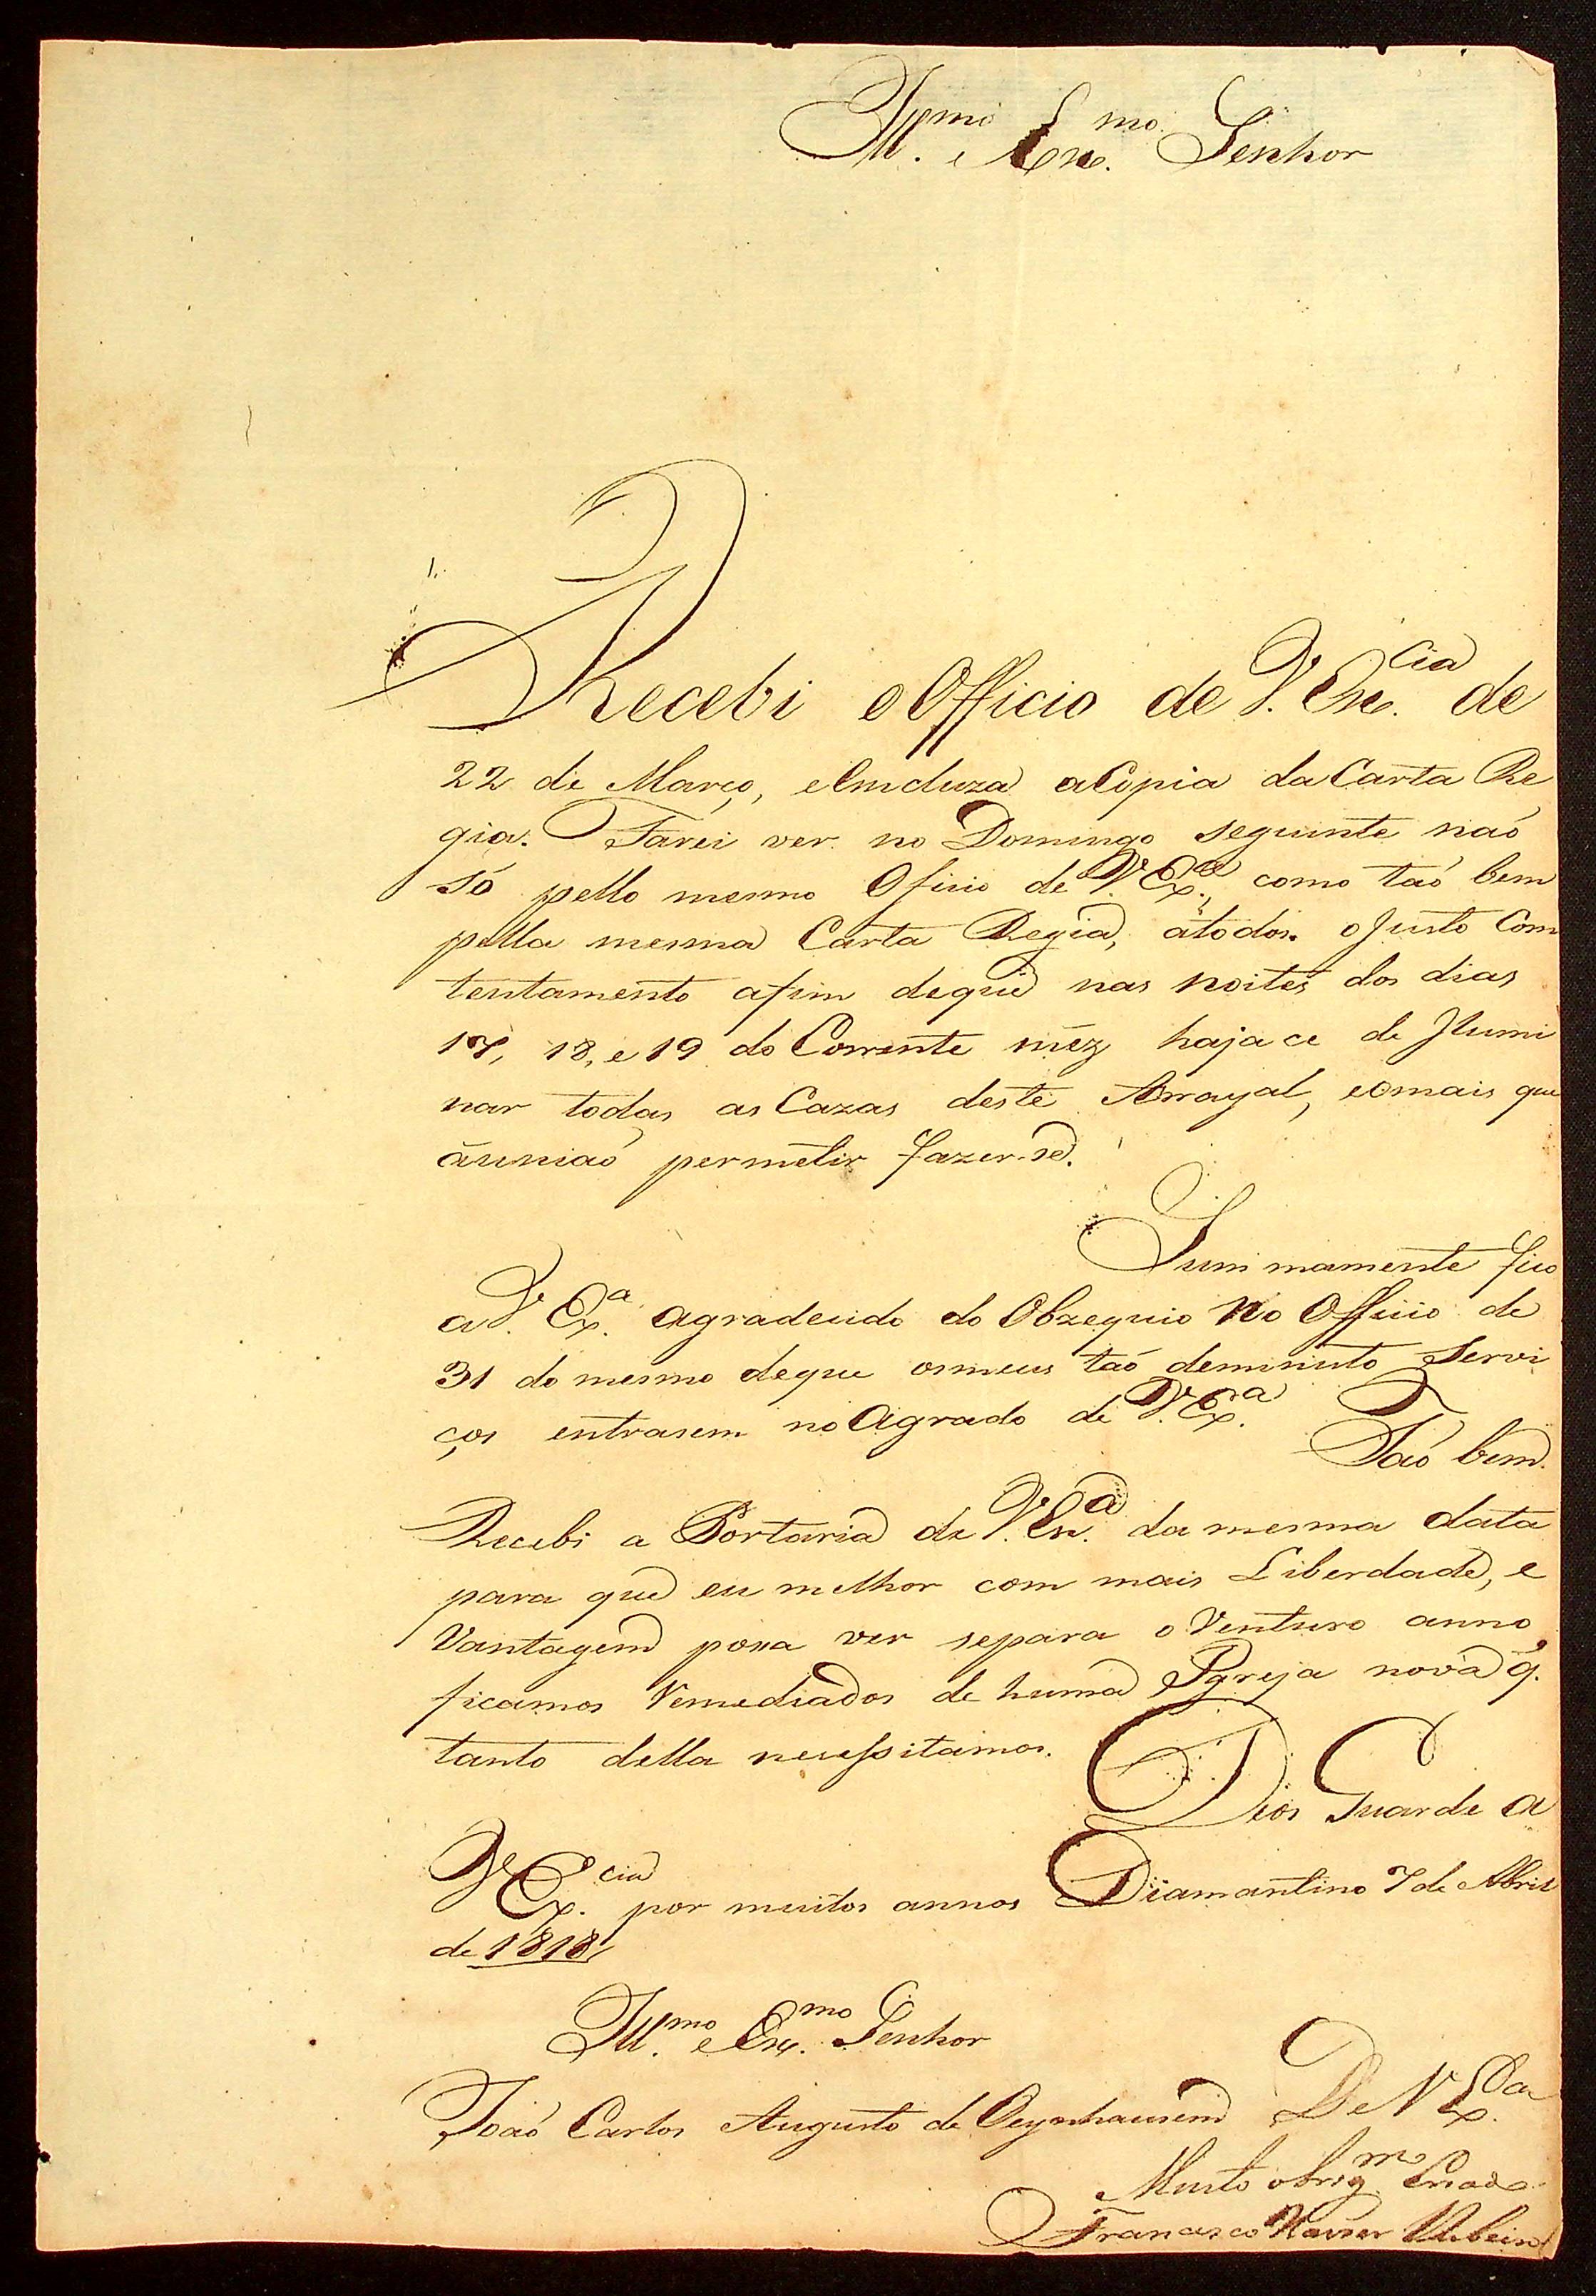 Ill.mo e Exc.mo Senhor
Recebi o Officio de V. Exc.cia de
22 de Março, e Emcluza a Copia da Carta Re
gia. Farei ver no Domingo seguinte naó
só pello mesmo Oficio de V. Ex.ca, como taó bem
pella mesma Carta Regia, átodos. o Justo Com
tentamento afim deque nas noites dos dias
17, 18, e 19 do Corrente méz haja ce de Ilumi
nar todas as Cazas deste Arrayal, eomais que
áuniaó permetir fazer-se.
Summamente fico
a V. Ex.a agradecido do Obzequio no Officio de
31 do mesmo deque osmeus taó deminuto Servi
ços entrasem no Agrado de V. Ex.a Taó bem
Recebi a Portaria de V. Ex.a da mesma data
para que eu melhor com mais Liberdade, e
Vantagem possa ver separa o Venturo anno,
ficamos Remediados de huma Igreja nova q.
tanto della necessitamos. Deos Guarde a
V. Ex.cia por muitos annos Diamantino 7 de Abril
de 1818
Ill.mo e Exc.mo Senhor
Joaó Carlos Augusto de Oeynhausem De V. Ex.ca
Muito obrig.mo Criado
Francisco Xavier Ribeiro